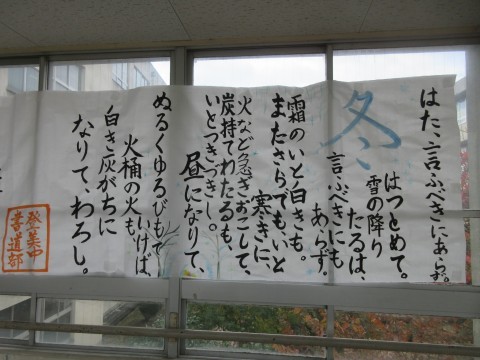 はた、言ふべきにあらず。
冬
はつとめて。
雪の降り
たるは、
言ふべきにも
あらず、
霜のいと白きも。
またさらでも、いと
寒きに、
火など急ぎおこして、
炭持てわたるも、
いとつきづきし。
昼になりて、
ぬるくゆるびもて
いけば、
火桶の火も、
白き灰がちに
なりて、わろし。
登美中
書道部